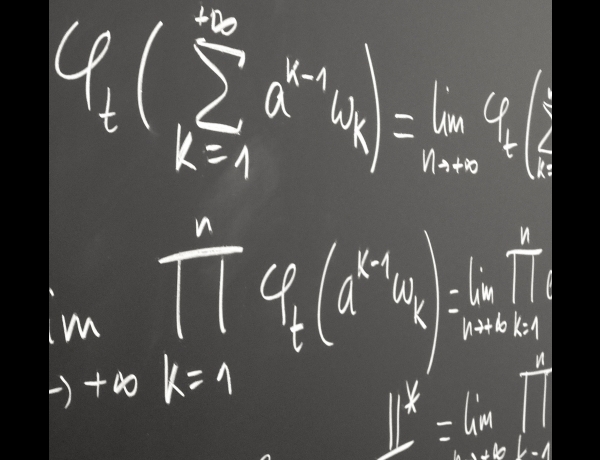 φ_t ( ∑_{k=1}^{+∞} a^{k-1} ω_k ) = lim_{n→+∞} φ_t ( ∑_{k=
im_{→+∞} ∏_{k=1}^{n} φ_t ( a^{k-1} ω_k ) = lim_{n→+∞} ∏_{k=1}^{n}
= lim ∏^{n}